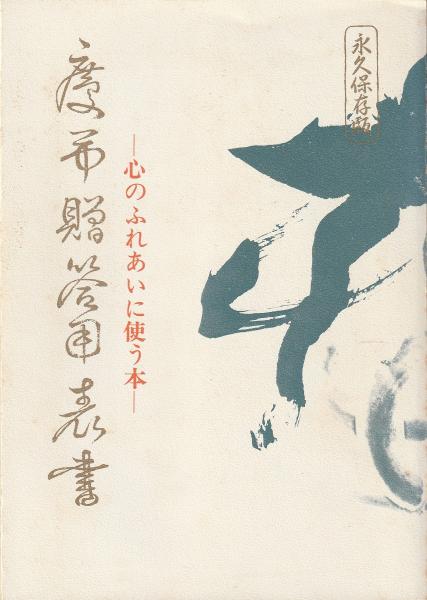 永久保存版
―心のふれあいに使う本―
慶弔贈答用表書